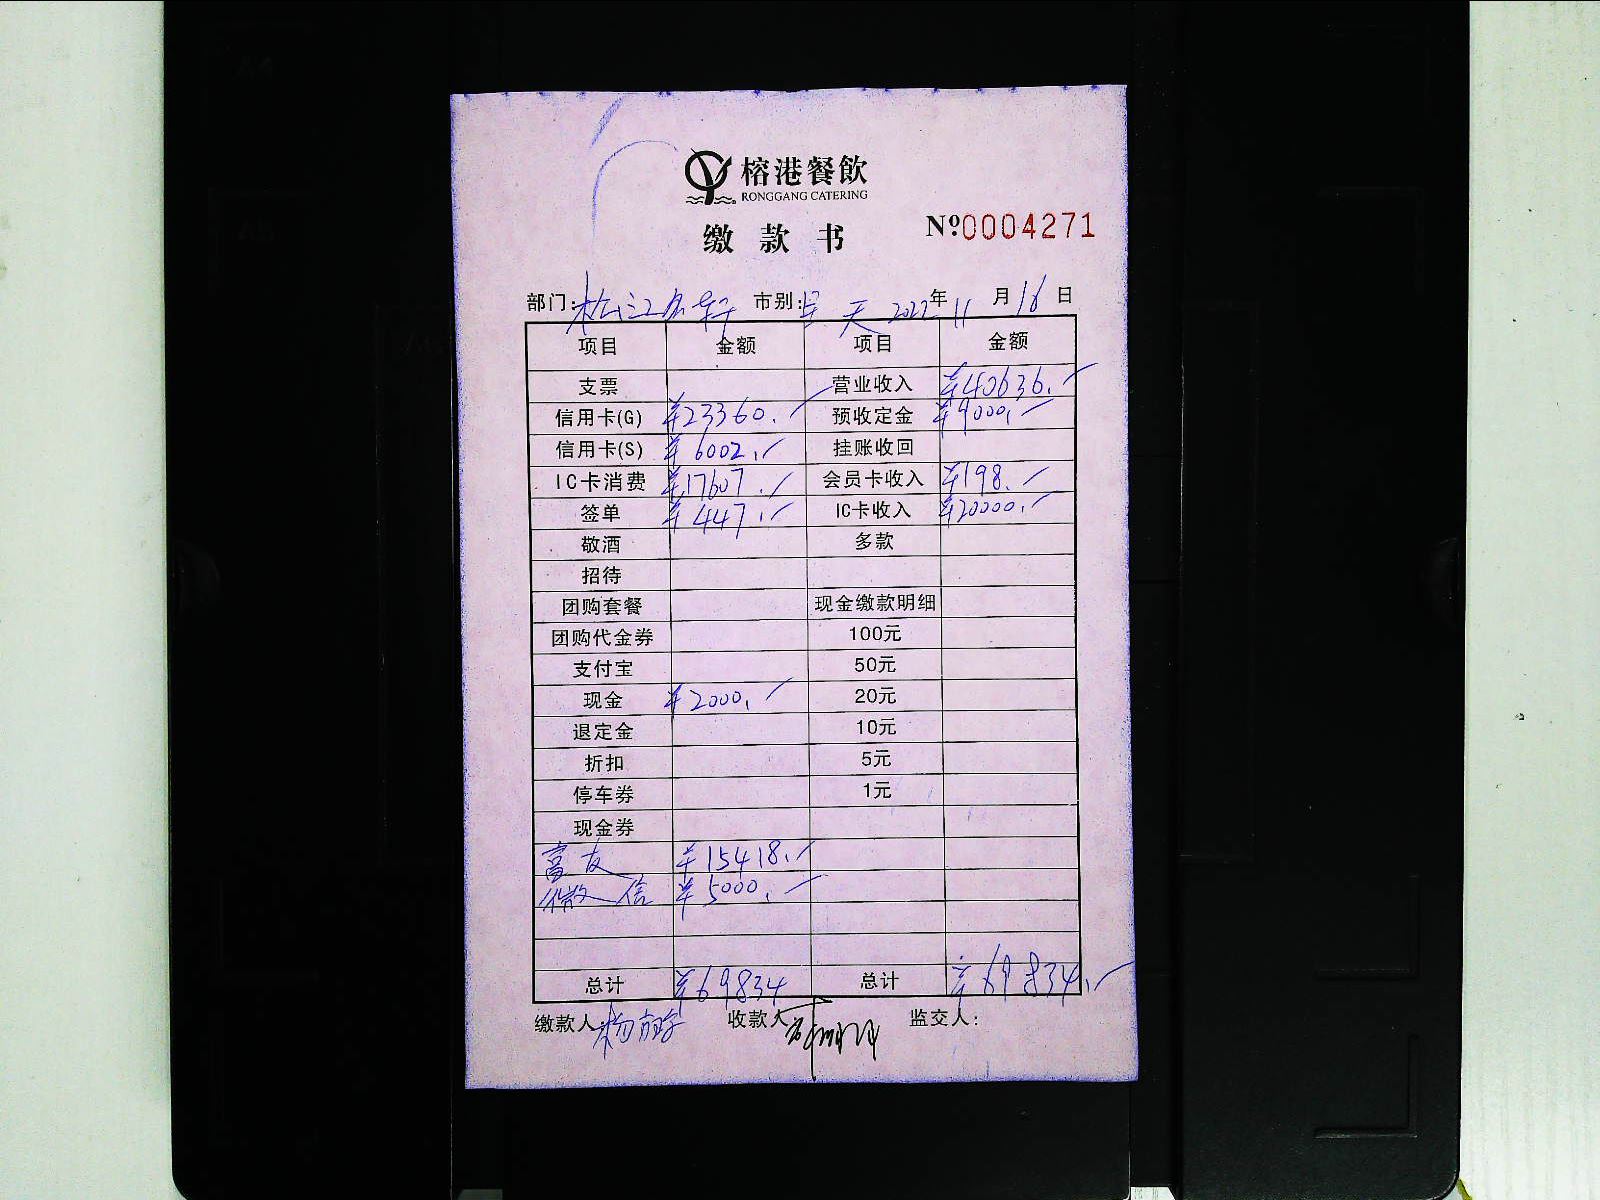 榕港餐飲
RONGGANG CATERING
缴款书
№0004271
部门：松江名轩 市别：昊天 2022年11月16日
项目 金额 项目 金额
支票 营业收入 ¥40636.
信用卡(G) ¥23360. 预收定金 ¥9000.
信用卡(S) ¥6002. 挂账收回
IC卡消费 ¥17607. 会员卡收入 ¥198.
签单 ¥447. IC卡收入 ¥20000.
敬酒 多款
招待
团购套餐 现金缴款明细
团购代金券 100元
支付宝 50元
现金 ¥2000. 20元
退定金 10元
折扣 5元
停车券 1元
现金券
富友 ¥15418.
微信 ¥5000.
总计 ¥69834 总计 ¥69834.
缴款人：杨 收款人 监交人：